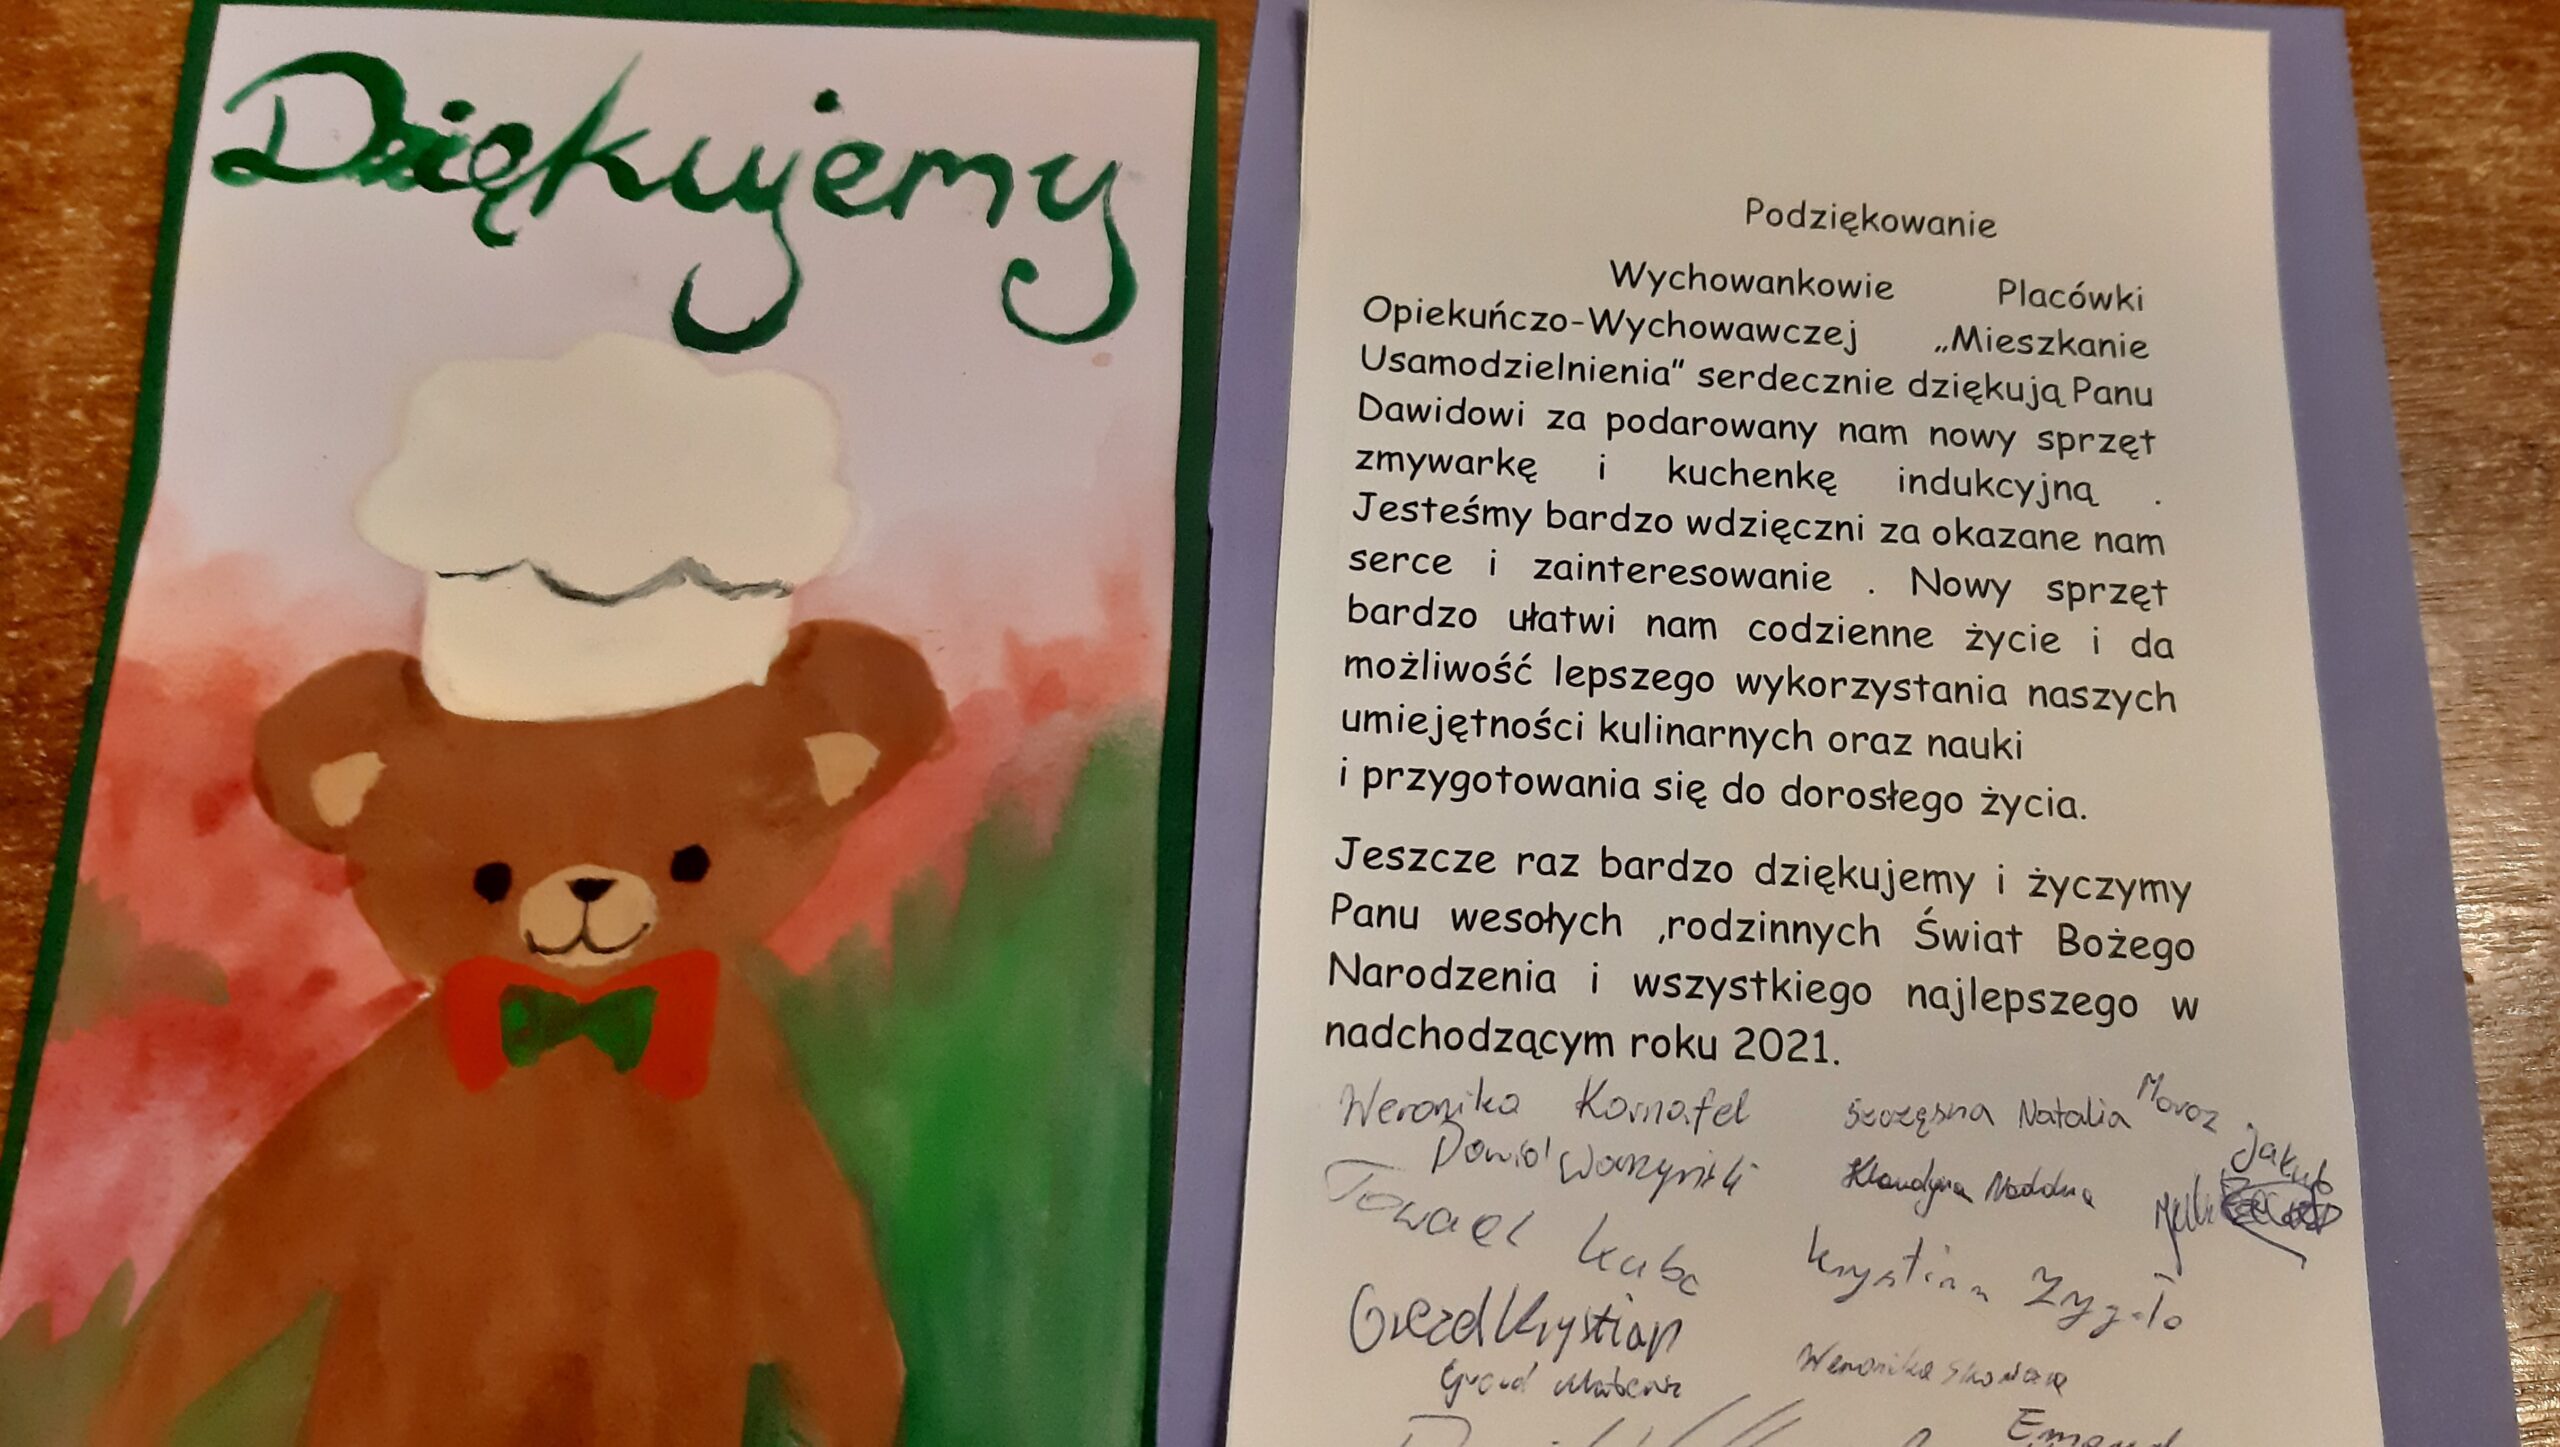 Dziękujemy
Podziękowanie
Wychowankowie Placówki
Opiekuńczo-Wychowawczej „Mieszkanie
Usamodzielnienia" serdecznie dziękują Panu
Dawidowi za podarowany nam nowy sprzęt
zmywarkę i kuchenkę indukcyjną .
Jesteśmy bardzo wdzięczni za okazane nam
serce i zainteresowanie . Nowy sprzęt
bardzo ułatwi nam codzienne życie i da
możliwość lepszego wykorzystania naszych
umiejętności kulinarnych oraz nauki
i przygotowania się do dorosłego życia.
Jeszcze raz bardzo dziękujemy i życzymy
Panu wesołych ,rodzinnych Świat Bożego
Narodzenia i wszystkiego najlepszego w
nadchodzącym roku 2021.
Weronika Kornafel Szczęsna Natalia Moroz
Jakub
Dawid Klaudyna
Kuba Krystian
Weronika